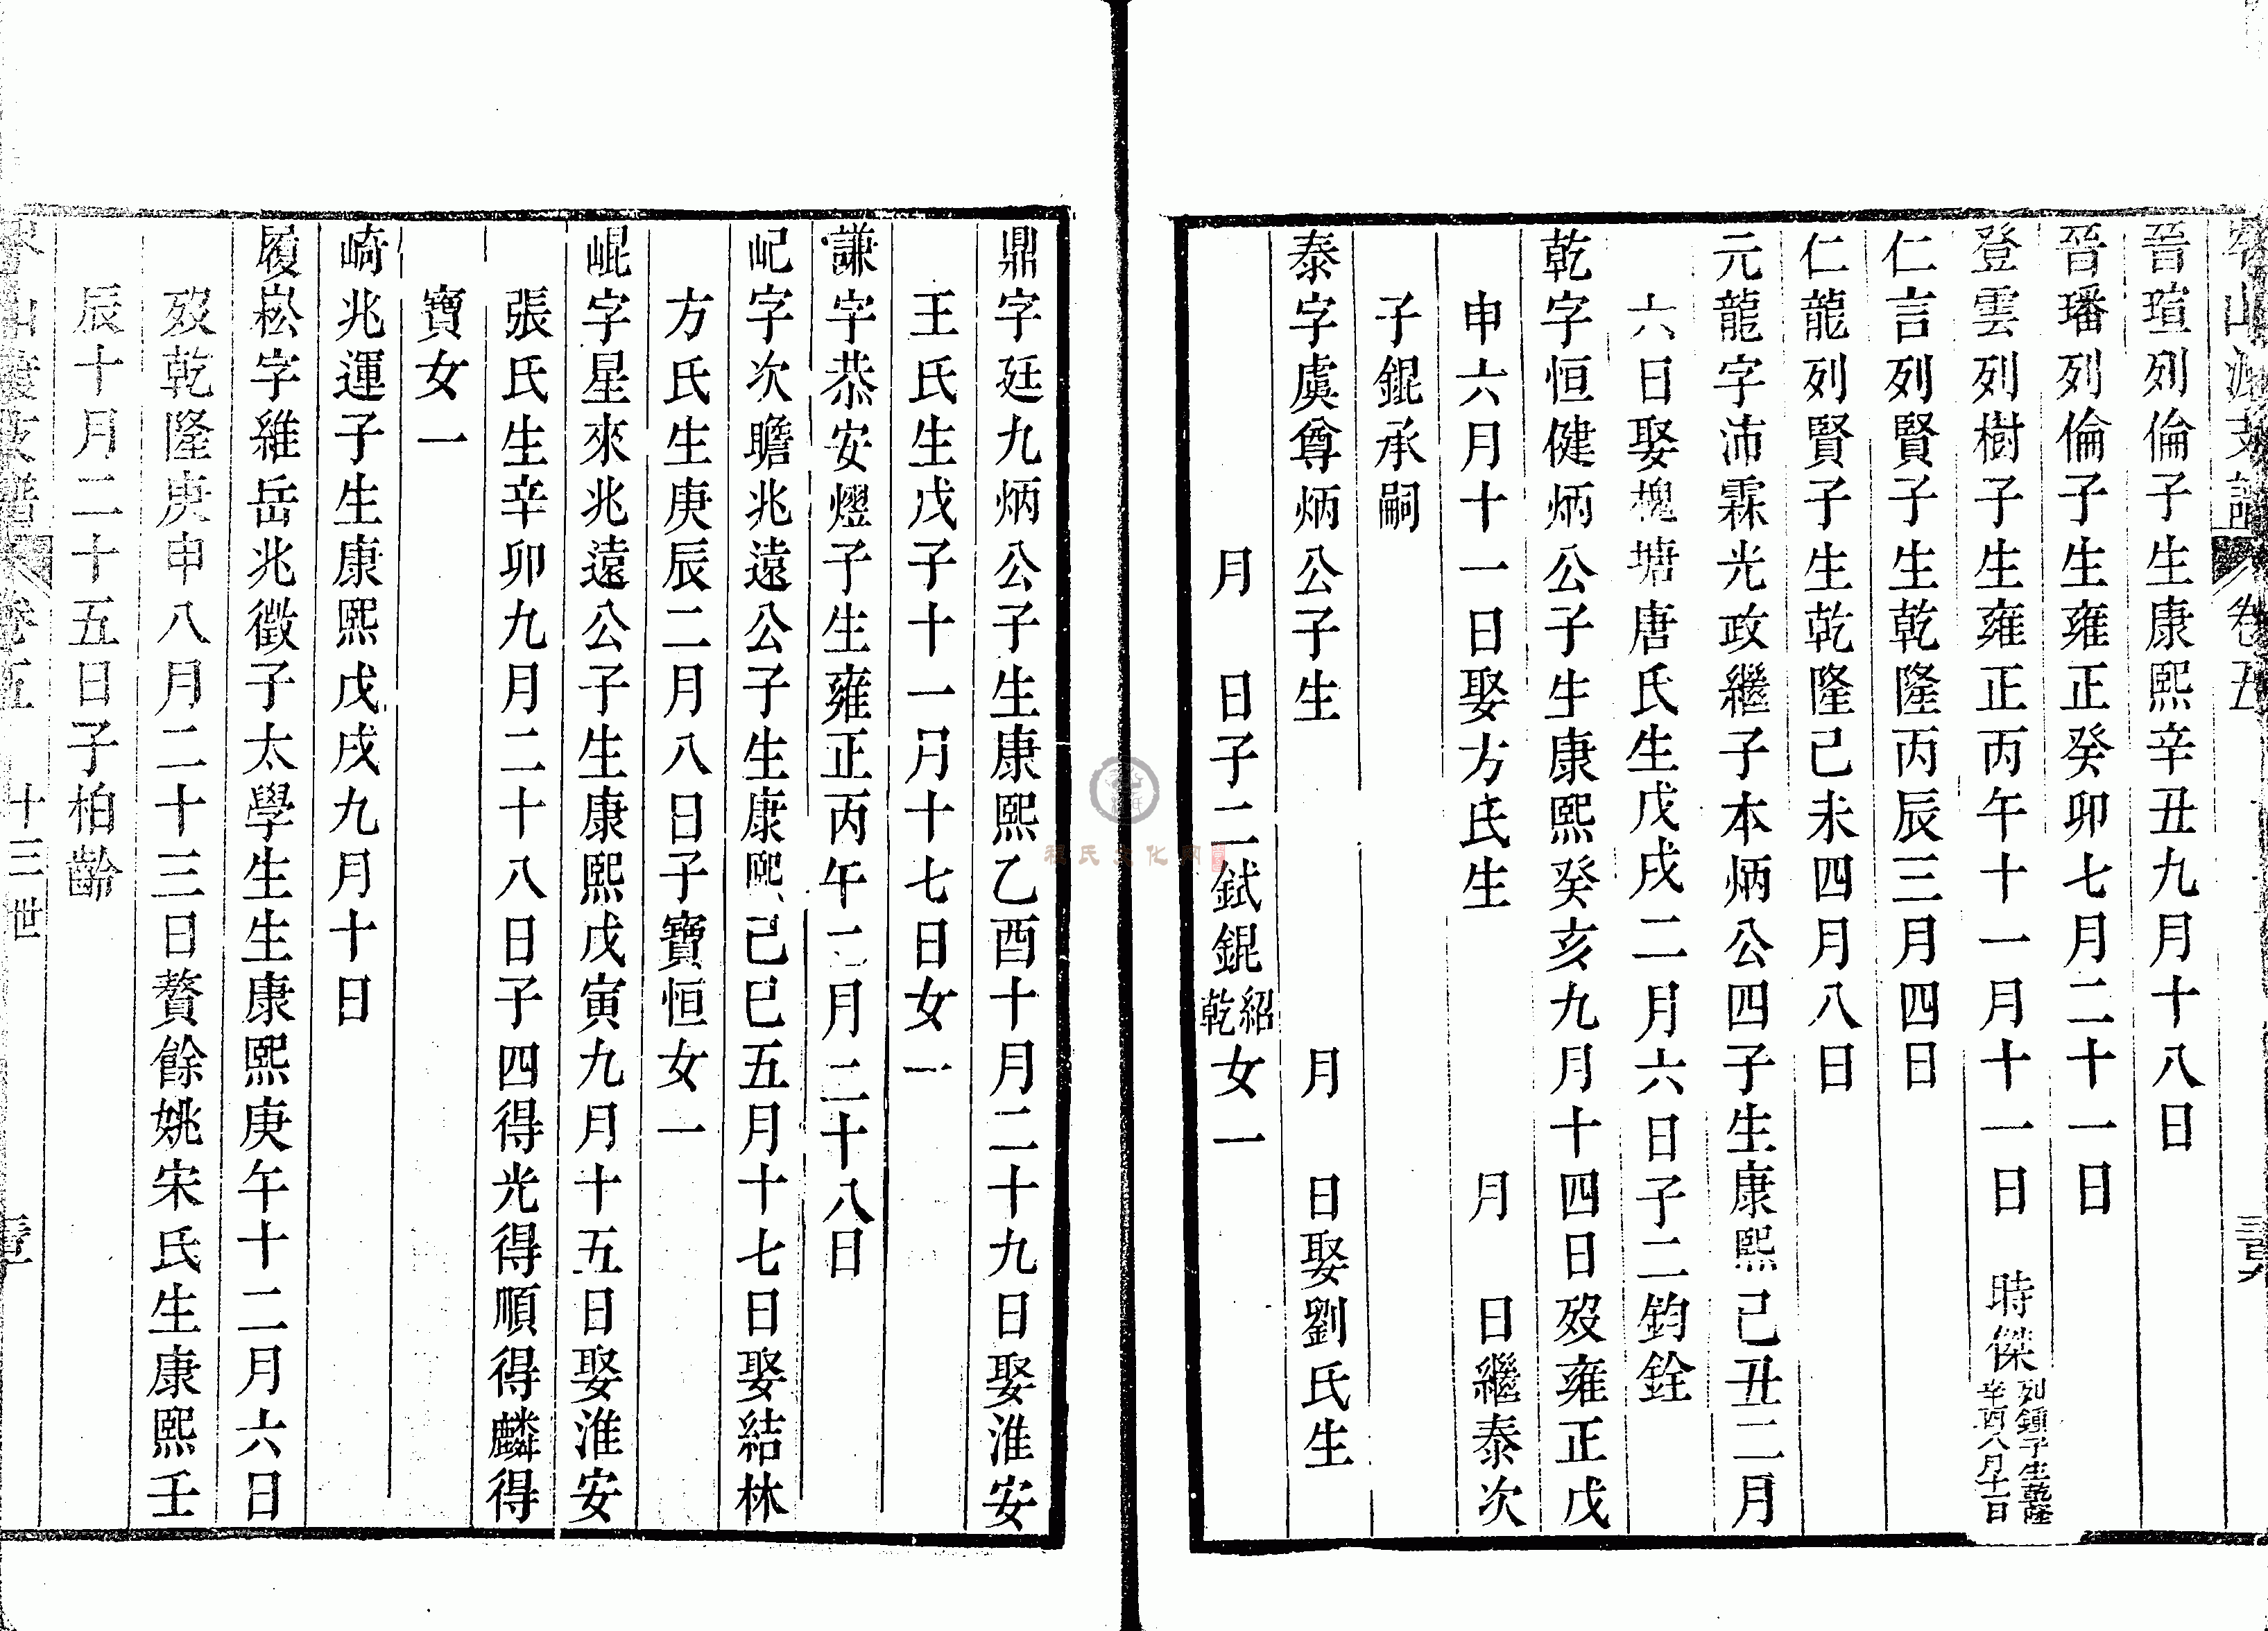 晉瑄列倫子生康熙辛丑九月十八日
晉璠列倫子生雍正癸卯七月二十一日
登雲列樹子生雍正丙午十一月十一日 時傑列鍾子生乾隆辛酉八月十一日
仁言列賢子生乾隆丙辰三月四日
仁龍列賢子生乾隆己未四月八日
元龍字沛霖光政繼子本炳公四子生康熙己丑二月
六日娶槐塘唐氏生戊戌二月六日子二鈞銓
乾字恒健炳公子生康熙癸亥九月十四日歿雍正戊
申六月十一日娶方氏生 月 日繼泰次
子錕承嗣
泰字虞尊炳公子生 月 日娶劉氏生
月 日子二錻錕紹乾女一
鼎字廷九炳公子生康熙乙酉十月二十九日娶淮安
王氏生戊子十一月十七日女一
謙字恭安燿子生雍正丙午二月二十八日
屺字次瞻兆遠公子生康熙己巳五月十七日娶結林
方氏生庚辰二月八日子寶恒女一
崐字星來兆遠公子生康熙戊寅九月十五日娶淮安
張氏生辛卯九月二十八日子四得光得順得麟得
寶女一
崎兆運子生康熙戊戌九月十日
履崧字維岳兆徵子太學生生康熙庚午十二月六日
歿乾隆庚申八月二十三日贅餘姚宋氏生康熙壬
辰十月二十五日子柏齡
支譜 卷五 十三世
程氏文化网